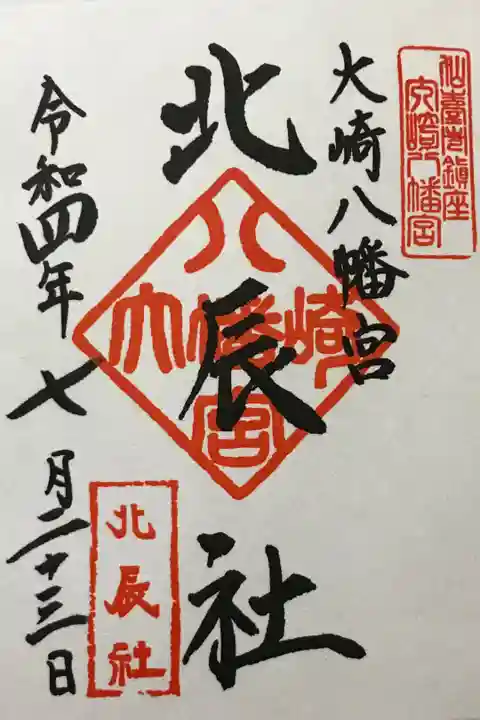 仙臺市鎮座
大崎八幡宮
大崎八幡宮
北辰社
大崎八幡宮
令和四年七月二十三日
北辰社